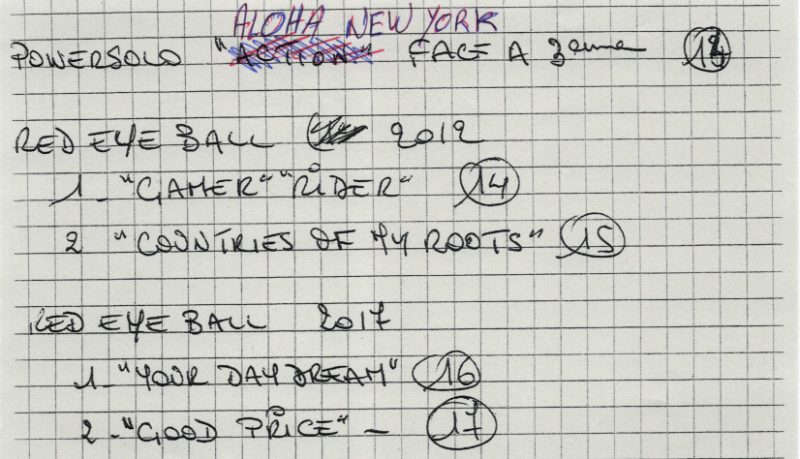 ALOHA NEW YORK
POWERSOLO "ACTION" FACE A 3eme 13
RED EYE BALL 2012
1_ "GAMER" "RIDER" 14
2 "COUNTRIES OF MY ROOTS" 15
RED EYE BALL 2017
1_ "YOUR DAY DREAM" 16
2_ "GOOD PRICE" _ 17